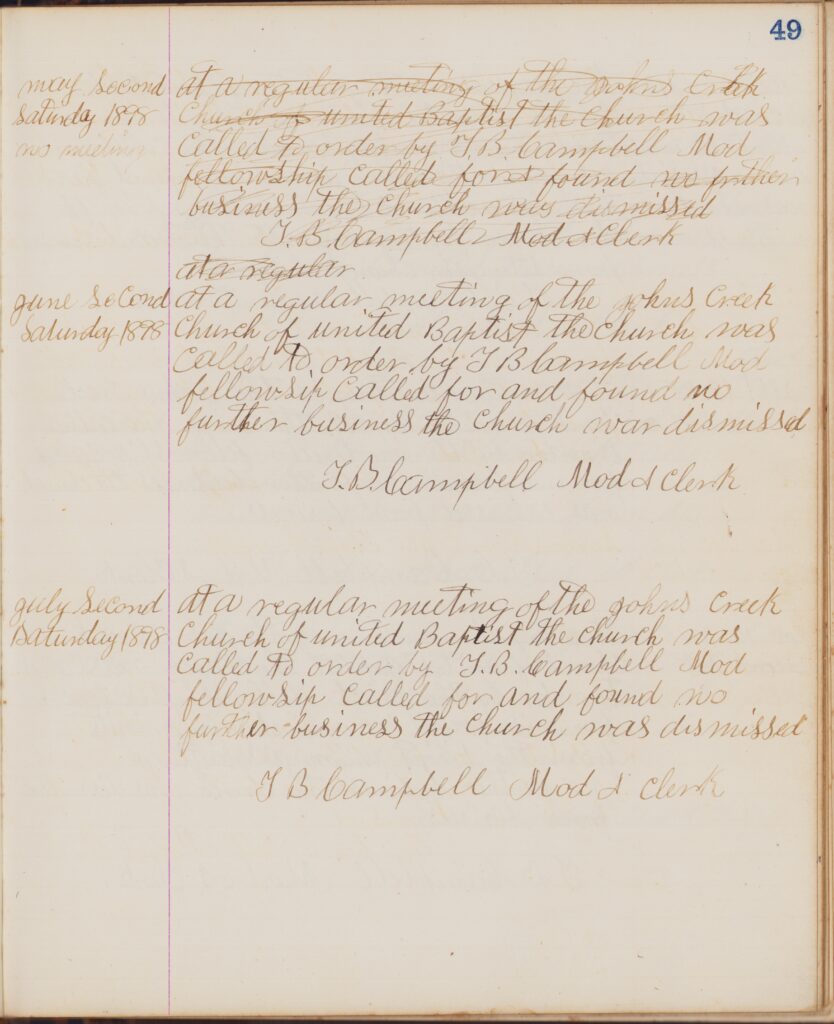 49
may Second
Saturday 1898
no meeting
at a regular meeting of the Johns Creek
Church of united Baptist the Church was
Called To order by T. B. Campbell Mod
fellowship Called for & found no further
business the Church was dismissed
T. B. Campbell Mod & Clerk
at a regular
june Second
Saturday 1898
at a regular meeting of the johns Creek
Church of united Baptist the church was
Called To order by T B Campbell Mod
fellowsip Called for and found no
further business the Church war dismissed
T. B. Campbell Mod & Clerk
july Second
Saturday 1898
at a regular meeting of the johns Creek
Church of united Baptist the church was
Called To order by T. B. Campbell Mod
fellowsip Called for and found no
further business the Church was dismissed
T B Campbell Mod & Clerk